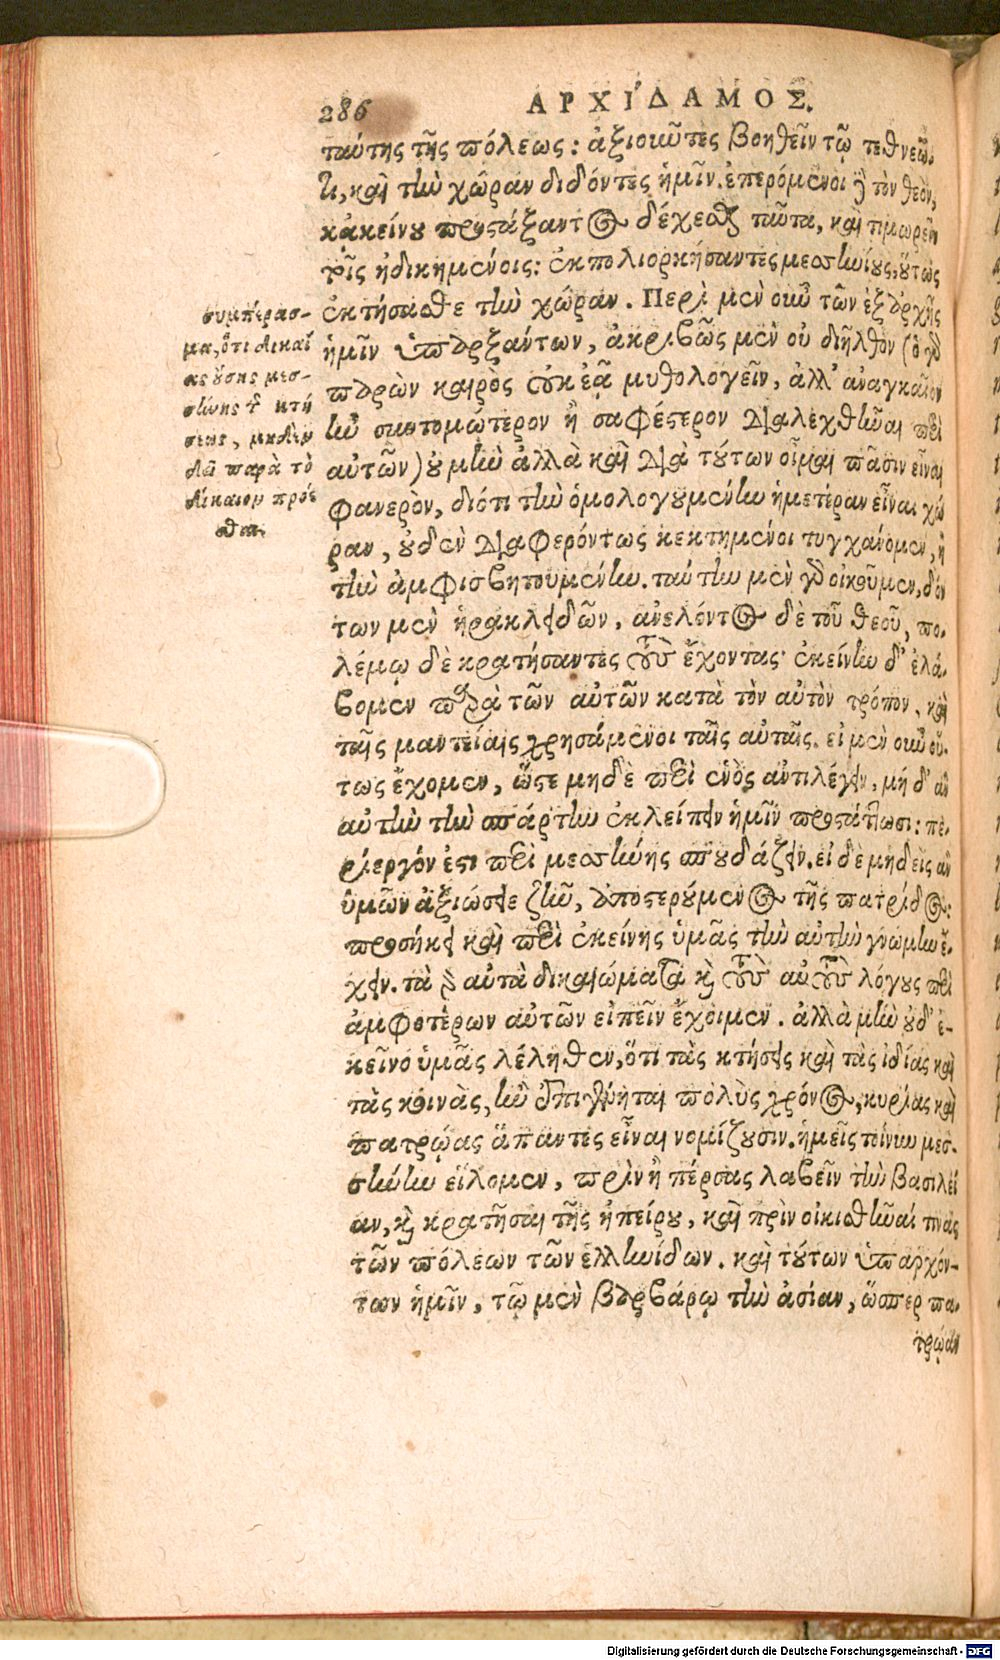 286 ΑΡΧΙΔΑΜΟΣ.
ταύτης τῆς πόλεως: ἀξιοιῶτες βοηθεῖν τῷ τεθνεῶ-
τι, καὶ τὴν χῶραν διδόντες ἡμῖν. ἐπερόμενοι ἢ τὸν θεὸν,
κἀκείνου προςτάξαντος δέχεσθαι ταῦτα, καὶ τιμωρεῖν
τοῖς ἠδικημένοις: ἐκπολιορκήσαντες μεσσηνίους, οὕτως
ἐκτήσασθε τὴν χώραν. Περὶ μὲν οὖν τῶν ἐξ ἀρχῆς
ἡμῖν ὑπαρξάντων, ἀκριβῶς μὲν οὐ διῆλθον (ὁ γὸ
παρὼν καιρὸς οὐκ ἐᾷ μυθολογεῖν, ἀλλ' ἀναγκαῖον
ἦν συντομώτερον ἢ σαφέστερον διαλεχθῆναι περὶ
αὐτῶν) οὐ μὴν ἀλλὰ καὶ διὰ τούτων οἶμαι πᾶσιν εἶναι
φανερὸν, διότι τὴν ὁμολογουμένην ἡμετέραν εἶναι χώ
ραν, οὐδὲν διαφερόντως κεκτημένοι τυγχάνομεν, ἢ
τὴν ἀμφισβητουμένην. ταύτην μὲν γὸ οἰκοῦμεν, δόν
των μὲν ἡρακλειδῶν, ἀνελόντος δὲ τοῦ θεοῦ, πο-
λέμῳ δὲ κρατήσαντες τοὺς ἔχοντας· ἐκείνην δ' ἐλά-
βομεν παρὰ τῶν αὐτῶν κατὰ τὸν αὐτὸν τρόπον, καὶ
ταῖς μαντείαις χρησάμενοι ταῖς αὐταῖς. εἰ μὲν οὖν οὕ-
τως ἔχομεν, ὥστε μηδὲ περὶ ἑνὸς ἀντιλέγειν, μή δ' ἂν
αὐτὴν τὴν σπάρτην ἐκλείπειν ἡμῖν προςτάττωσι: πε-
ρίεργόν ἐστι περὶ μεσσήνης σπουδάζειν. εἰ δὲ μηδεὶς ἂν
ὑμῶν ἀξιώσειε ζῆν, ἀποστερούμενος τῆς πατρίδος:
προσήκει καὶ περὶ ἐκείνης ὑμᾶς τὴν αὐτὴν γνώμην ἔ-
χειν. τὰ γὸ αὐτὰ δικαιώματα καὶ τοὺς αὐτοὺς λόγους περὶ
ἀμφοτέρων αὐτῶν εἰπεῖν ἔχοιμεν. ἀλλὰ μὴν οὐδ' ἐ-
κεῖνο ὑμᾶς λέληθεν, ὅτι τὰς κτήσεις καὶ τὰς ἰδίας καὶ
τὰς κοινὰς, ἢν ἐπιγένηται πολὺς χρόνος, κυρίας καὶ
πατρῴας ἅπαντες εἶναι νομίζουσιν. ἡμεῖς τοίνυν μεσ-
σήνην εἵλομεν, πρὶν ἢ πέρσας λαβεῖν τὴν βασιλεί
αν, καὶ κρατῆσαι τῆς ἠπείρου, καὶ πρὶν οἰκισθῆναί τινας
τῶν πόλεων τῶν ἑλληνίδων. καὶ τούτων ὑπαρχόν-
των ἡμῖν, τῷ μὲν βαρβάρῳ τὴν ἀσίαν, ὥσπερ πα-
τρῴαν
συμπέρασ-
μα, ὅτι δικαί
ας οὔσης μεσ-
σήνης τ κτή
σεως, μηδὲν
δεῖ παρὰ τὸ
δίκαιον πρόε
σθαι.
Digitalisierung gefördert durch die Deutsche Forschungsgemeinschaft - DFG